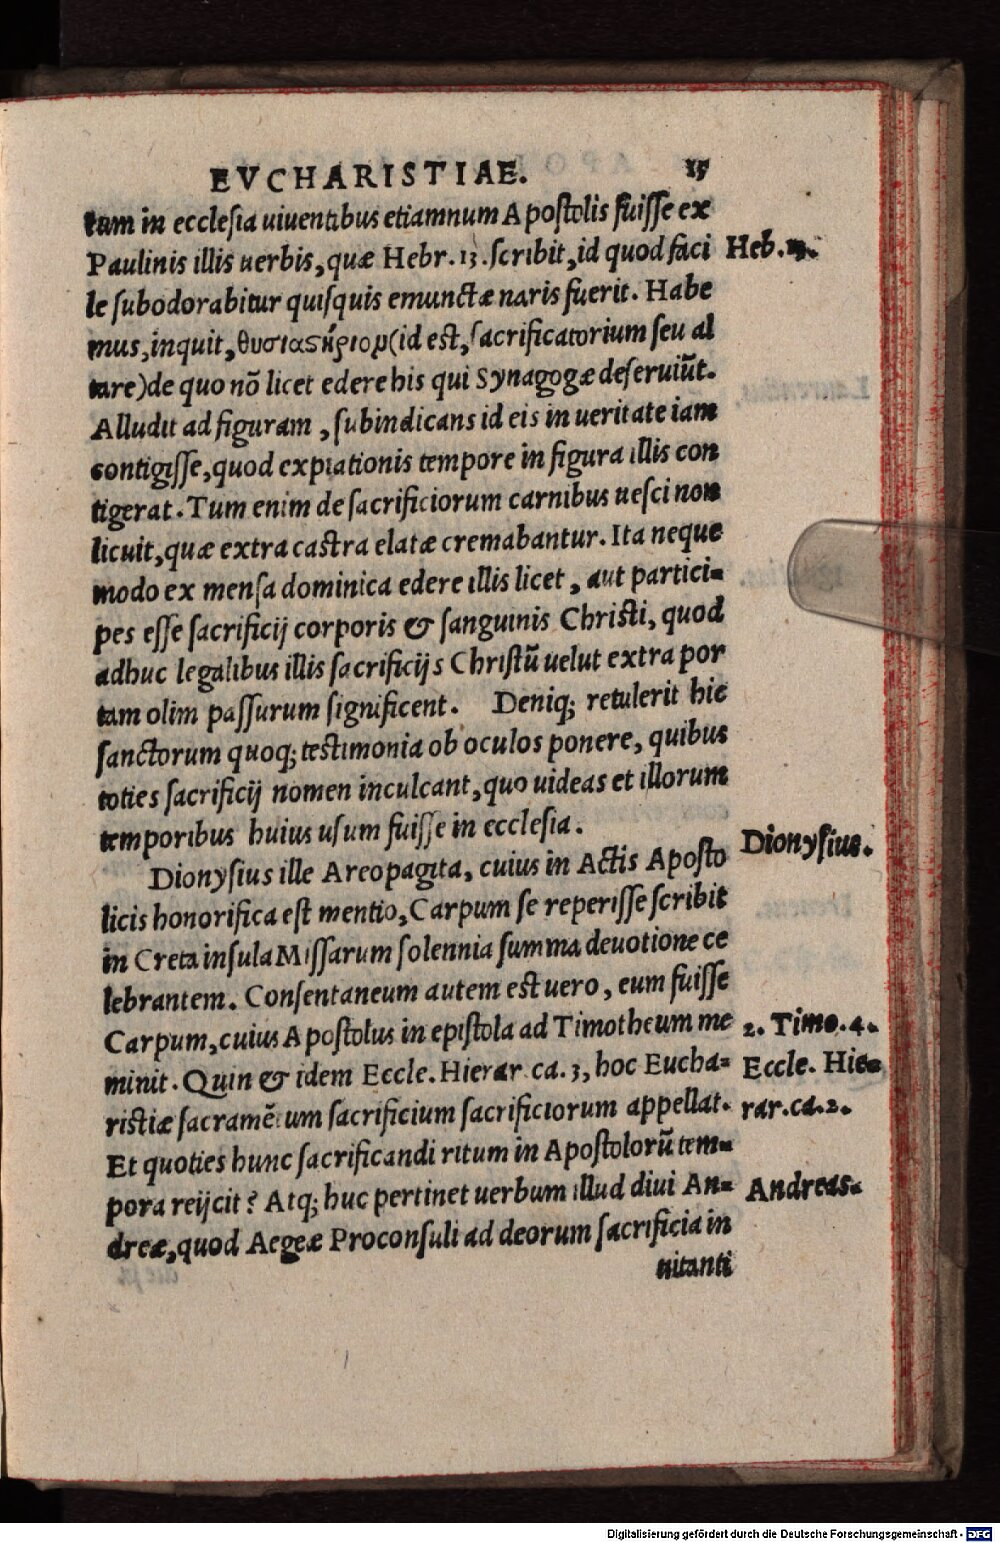 EVCHARISTIAE. 15
tam in ecclesia uiuentibus etiamnum Apostolis fuisse ex
Paulinis illis uerbis, quæ Hebr. 13. scribit, id quod faci
Heb. 13.
le subodorabitur quisquis emunctæ naris fuerit. Habe
mus, inquit, θυσιαϛήριομ (id est, sacrificatorium seu al
tare) de quo nō licet edere his qui Synagogæ deseruiūt.
Alludit ad figuram, subindicans id eis in ueritate iam
contigisse, quod expiationis tempore in figura illis con
tigerat. Tum enim de sacrificiorum carnibus uesci non
licuit, quæ extra castra elatæ cremabantur. Ita neque
modo ex mensa dominica edere illis licet, aut partici=
pes esse sacrificij corporis & sanguinis Christi, quod
adhuc legalibus illis sacrificijs Christū uelut extra por
tam olim passurum significent. Deniq; retulerit hic
sanctorum quoq; testimonia ob oculos ponere, quibus
toties sacrificij nomen inculcant, quo uideas et illorum
temporibus huius usum fuisse in ecclesia.
Dionysius ille Areopagita, cuius in Actis Aposto
Dionysius.
licis honorifica est mentio, Carpum se reperisse scribit
in Creta insula Missarum solennia summa deuotione ce
lebrantem. Consentaneum autem est uero, eum fuisse
Carpum, cuius Apostolus in epistola ad Timotheum me
2. Timo. 4.
minit. Quin & idem Eccle. Hierar. ca. 3, hoc Eucha=
Eccle. Hie=
ristiæ sacramētum sacrificium sacrificiorum appellat.
rar. ca. 2.
Et quoties hunc sacrificandi ritum in Apostolorū tem=
pora reijcit? Atq; huc pertinet uerbum illud diui An=
Andreas.
dreæ, quod Aegeæ Proconsuli ad deorum sacrificia in
uitanti
Digitalisierung gefördert durch die Deutsche Forschungsgemeinschaft - DFG